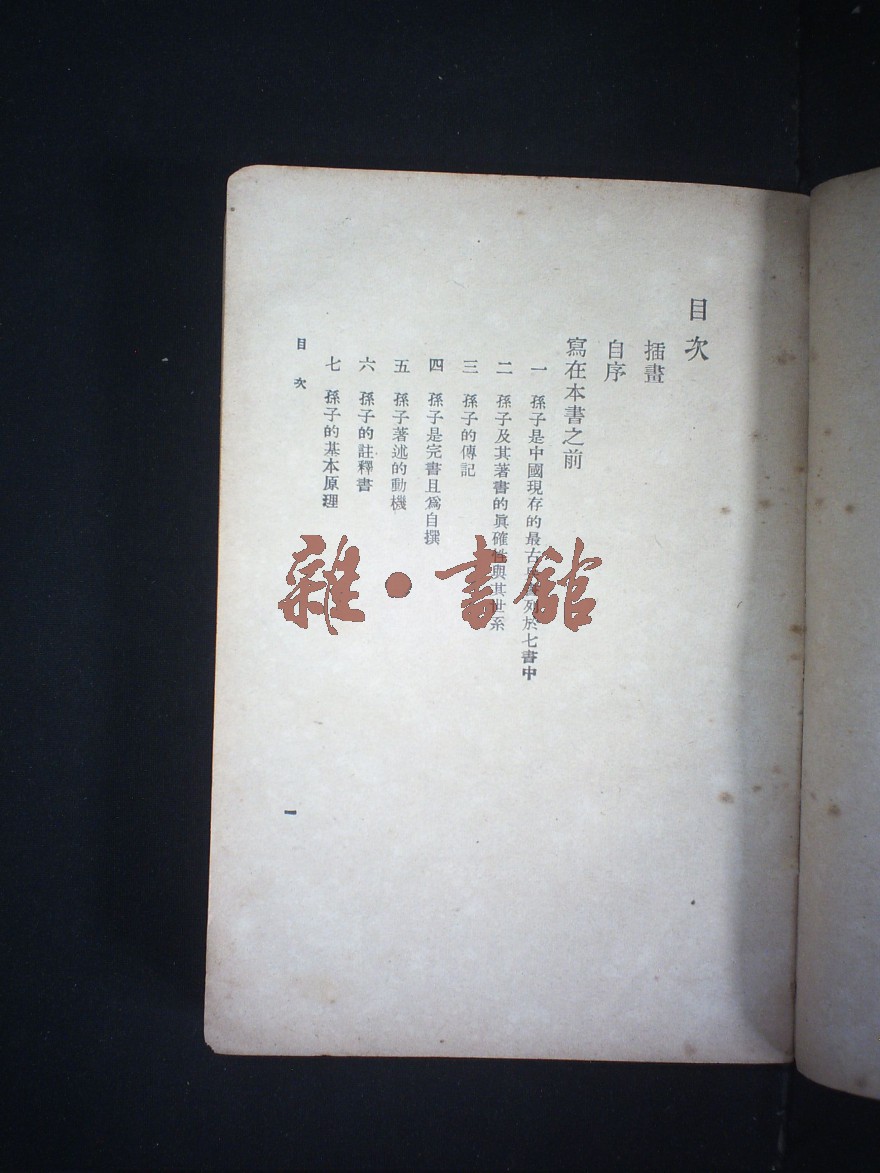 目次
插畫
自序
寫在本書之前
一 孫子是中國現存的最古兵書列於七書中
二 孫子及其著書的眞確性與其世系
三 孫子的傳記
四 孫子是完書且爲自撰
五 孫子著述的動機
六 孫子的註釋書
七 孫子的基本原理
目次
一
雜·書館